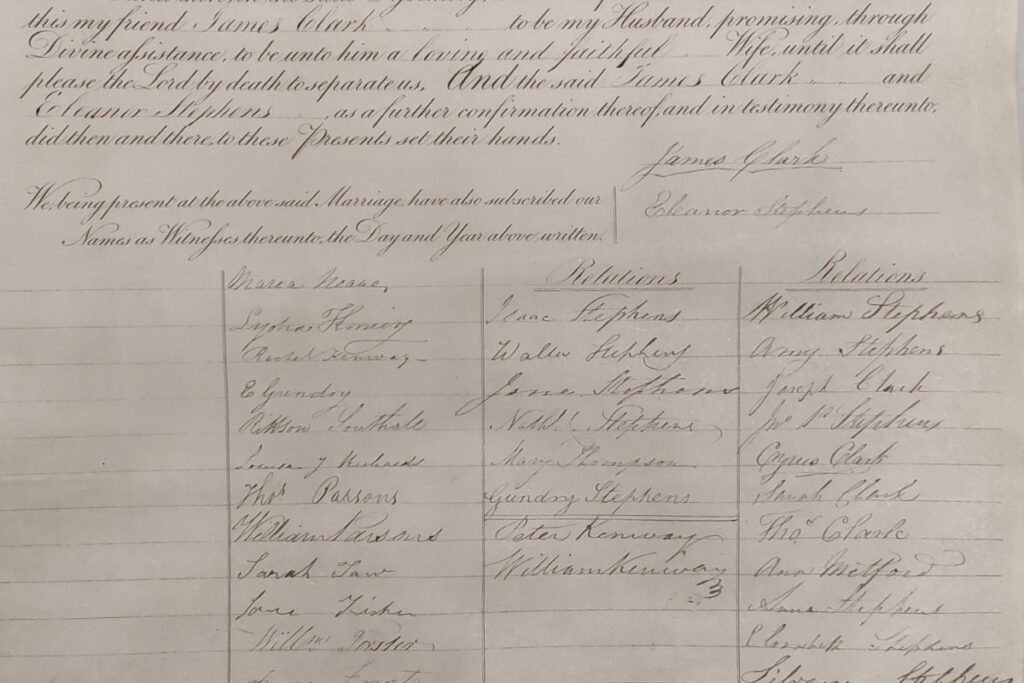 this my friend James Clark to be my Husband, promising, through
Divine assistance, to be unto him a loving and faithful Wife, until it shall
please the Lord by death to separate us. And the said James Clark and
Eleanor Stephens, as a further confirmation thereof, and in testimony thereunto,
did then and there, to these Presents set their hands.
James Clark
Eleanor Stephens
We, being present at the above said Marriage, have also subscribed our
Names as Witnesses thereunto, the Day and Year above written.
Maria
Lydia
Rachel Kenway
E Gundry
Southall
Thos. Parsons
William Parsons
Sarah
Jane Fisher
Willm. Forster
Relations
Isaac Stephens
Walter Stephens
Jane Stephens
Nathl. Stephens
Mary Thompson
Gundry Stephens
Peter Kenway
William Kenway
3
Relations
William Stephens
Amy Stephens
Joseph Clark
Jno. P Stephens
Cyrus Clark
Sarah Clark
Thos. Clark
Ann Metford
Anna Stephens
Elizabeth Stephens
Stephens